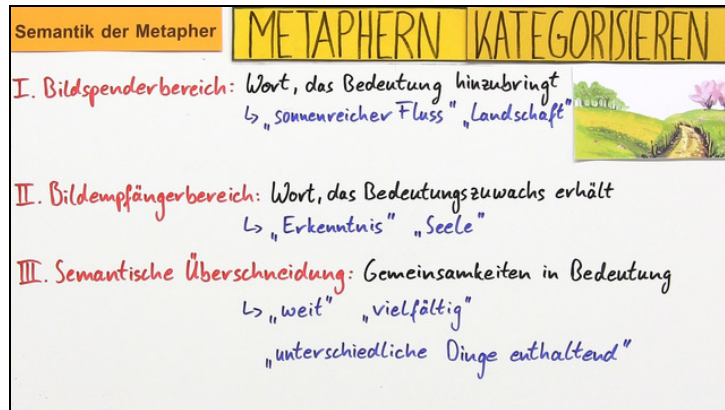 Semantik der Metapher
METAPHERN KATEGORISIEREN
I. Bildspenderbereich: Wort, das Bedeutung hinzubringt
↳ „sonnenreicher Fluss" „Landschaft"
II. Bildempfängerbereich: Wort, das Bedeutungszuwachs erhält
↳ „Erkenntnis" „Seele"
III. Semantische Überschneidung: Gemeinsamkeiten in Bedeutung
↳ „weit" „vielfältig"
„unterschiedliche Dinge enthaltend"